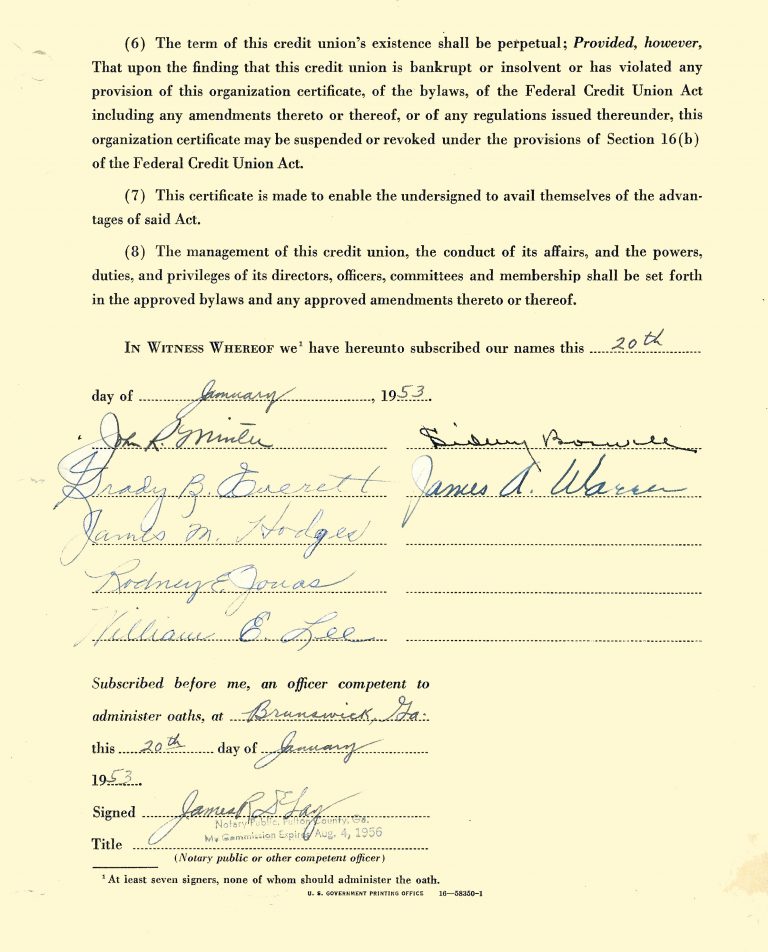 (6) The term of this credit union's existence shall be perpetual; Provided, however,
That upon the finding that this credit union is bankrupt or insolvent or has violated any
provision of this organization certificate, of the bylaws, of the Federal Credit Union Act
including any amendments thereto or thereof, or of any regulations issued thereunder, this
organization certificate may be suspended or revoked under the provisions of Section 16(b)
of the Federal Credit Union Act.
(7) This certificate is made to enable the undersigned to avail themselves of the advan-
tages of said Act.
(8) The management of this credit union, the conduct of its affairs, and the powers,
duties, and privileges of its directors, officers, committees and membership shall be set forth
in the approved bylaws and any approved amendments thereto or thereof.
IN WITNESS WHEREOF we¹ have hereunto subscribed our names this 20th
day of January, 1953.
John R. Minter Sidney Boswell
Grady B. Everett James A. Warren
James M. Hodges
Rodney E. Jouas
William E. Lee
Subscribed before me, an officer competent to
administer oaths, at Brunswick, Ga.
this 20th day of January
1953.
Signed James R.
Notary Public, Fulton County, Ga.
My Commission Expires Aug. 4, 1956
Title
(Notary public or other competent officer)
¹ At least seven signers, none of whom should administer the oath.
U. S. GOVERNMENT PRINTING OFFICE 16—58350-1